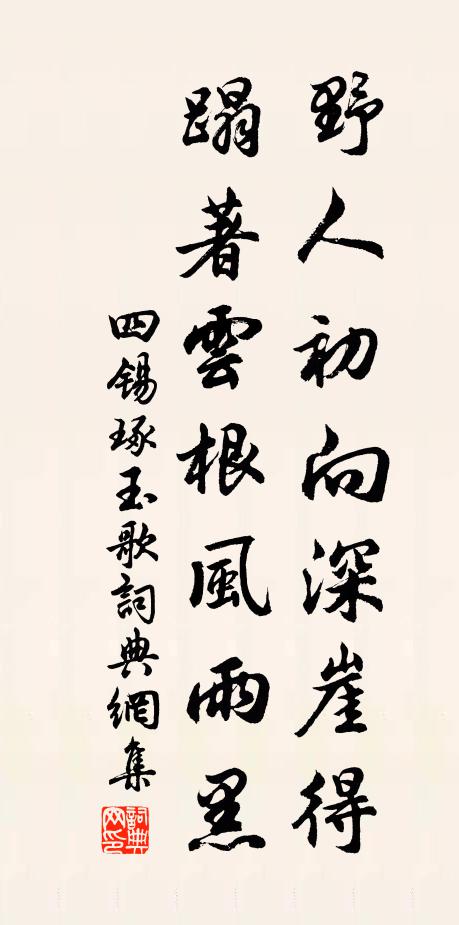 野人初向深崖得
蹋著雲根風雨黑
四錫琢玉歌詞典網集
詞典網印